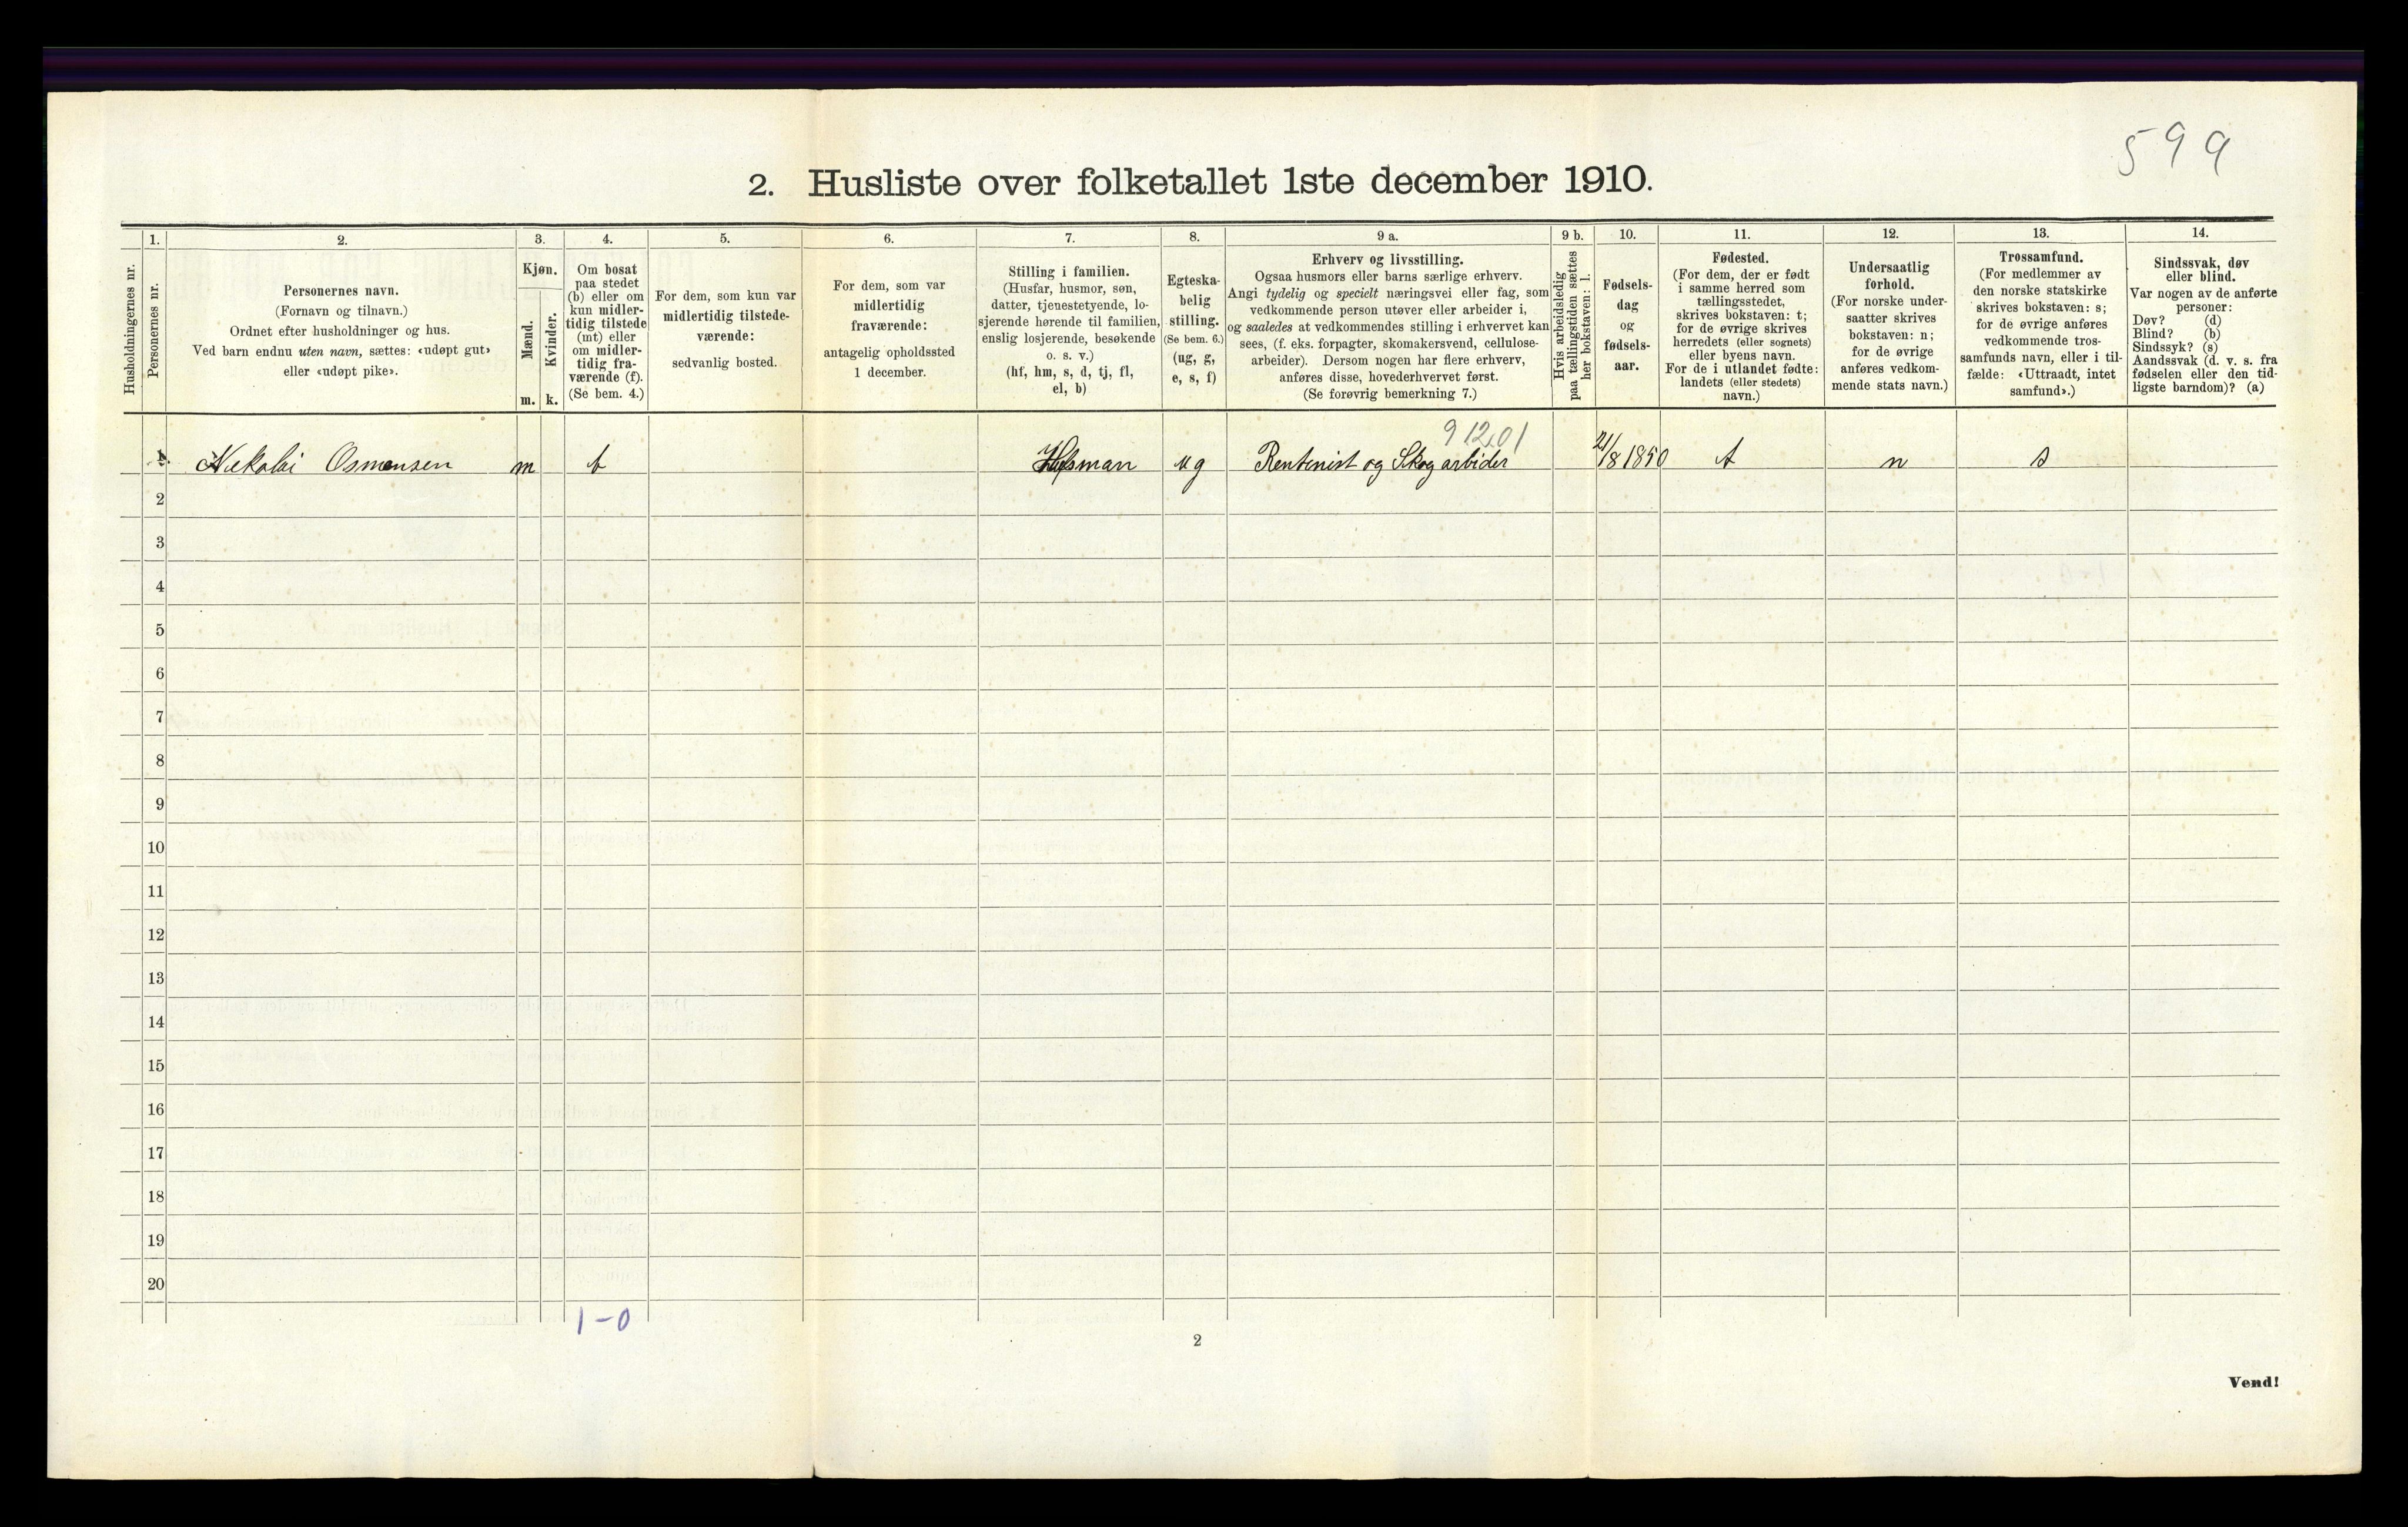 599
2. Husliste over folketallet 1ste december 1910.
Husholdningernes nr.
1.
Personernes nr.
2.
Personernes navn.
(Fornavn og tilnavn.)
Ordnet efter husholdninger og hus.
Ved barn endnu uten navn, sættes: «udøpt gut»
eller «udøpt pike».
3.
Kjøn.
Mænd.
Kvinder.
m. k.
4.
Om bosat
paa stedet
(b) eller om
kun midler-
tidig tilstede
(mt) eller
om midler-
tidig fra-
værende (f).
(Se bem. 4.)
5.
For dem, som kun var
midlertidig tilstede-
værende:
sedvanlig bosted.
6.
For dem, som var
midlertidig
fraværende:
antagelig opholdssted
1 december.
7.
Stilling i familien.
(Husfar, husmor, søn,
datter, tjenestetyende, lo-
sjerende hørende til familien,
enslig losjerende, besøkende
o. s. v.)
(hf, hm, s, d, tj, fl,
el, b)
8.
Egteska-
belig
stilling.
(Se bem. 6.)
(ug, g,
e, s, f)
9 a.
Erhverv og livsstilling.
Ogsaa husmors eller barns særlige erhverv.
Angi tydelig og specielt næringsvei eller fag, som
vedkommende person utøver eller arbeider i,
og saaledes at vedkommendes stilling i erhvervet kan
sees, (f. eks. forpagter, skomakersvend, cellulose-
arbeider). Dersom nogen har flere erhverv,
anføres disse, hovederhvervet først.
(Se forøvrig bemerkning 7.)
9 b.
Hvis arbeidsledig
paa tællingstiden sættes
her bokstaven: l.
10.
Fødsels-
dag
og
fødsels-
aar.
11.
Fødested.
(For dem, der er født
i samme herred som
tællingsstedet,
skrives bokstaven: t;
for de øvrige skrives
herredets (eller sognets)
eller byens navn.
For de i utlandet fødte:
landets (eller stedets)
navn.)
12.
Undersaatlig
forhold.
(For norske under-
saatter skrives
bokstaven: n;
for de øvrige
anføres vedkom-
mende stats navn.)
13.
Trossamfund.
(For medlemmer av
den norske statskirke
skrives bokstaven: s;
for de øvrige anføres
vedkommende tros-
samfunds navn, eller i til-
fælde: «Uttraadt, intet
samfund».)
14.
Sindssvak, døv
eller blind.
Var nogen av de anførte
personer:
Døv? (d)
Blind? (b)
Sindssyk? (s)
Aandssvak (d. v. s. fra
fødselen eller den tid-
ligste barndom)? (a)
91201
1. Nikolai Osmonsen m b Husman ug Rentenist og Skogarbider 21/8 1850 t n s
2
3
4
5
6
7
8
9
10
11
12
13
14
15
16
17
18
19
20
1-0
2
Vend!